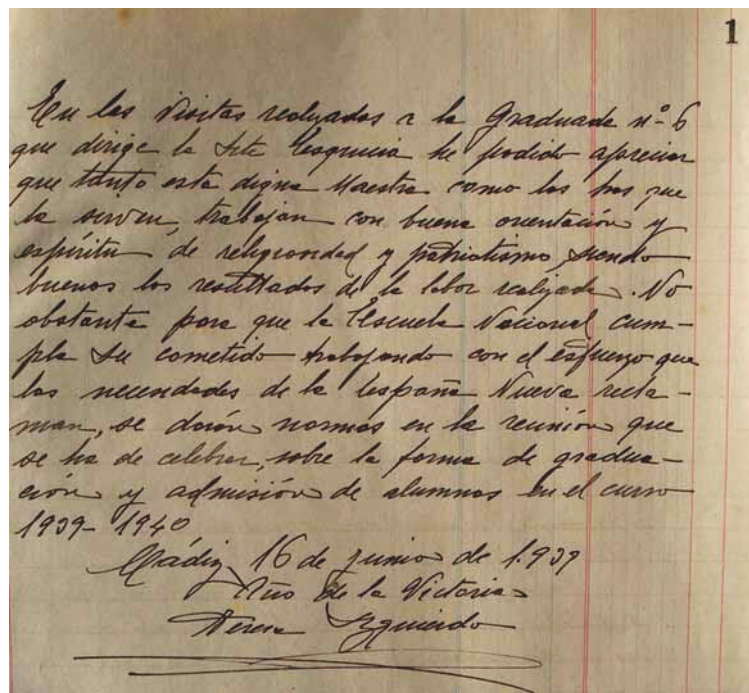 1
En las visitas realizadas a la Graduada nº 6
que dirige la Srta he podido apreciar
que tanto esta digna Maestra como las tres que
la sirven, trabajan con buena orientación y
espíritu de religiosidad y patriotismo siendo
buenos los resultados de la labor realizada. No
obstante para que la Escuela Nacional cum-
pla su cometido trabajando con el esfuerzo que
las necesidades de la España Nueva recla-
man, se darán normas en la reunión que
se ha de celebrar, sobre la forma de gradua-
ción y admisión de alumnas en el curso
1939-1940
Cádiz, 16 de junio de 1.939
Año de la Victoria
Teresa Izquierdo